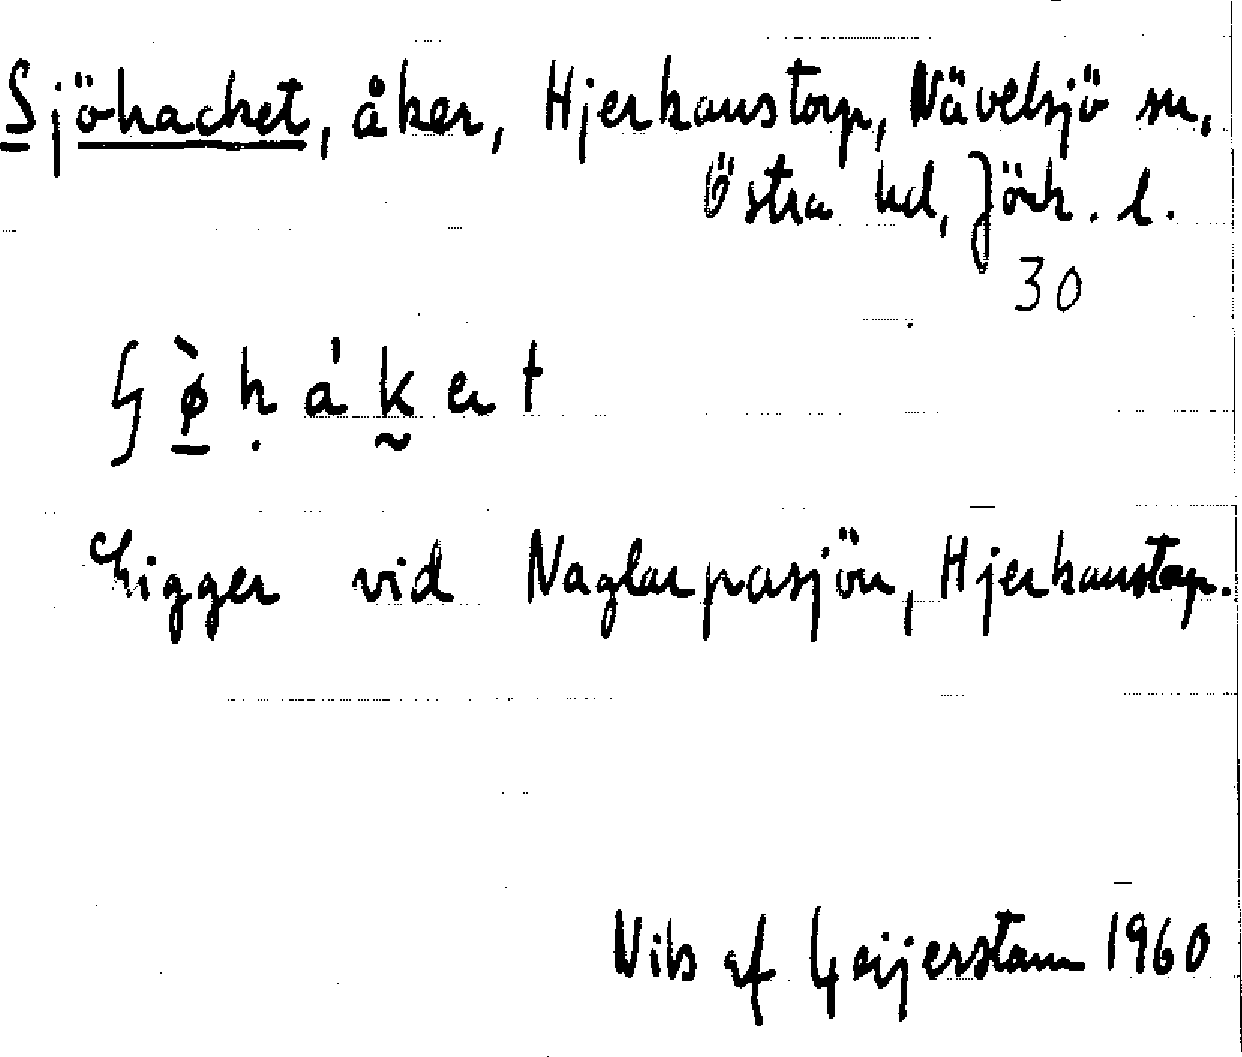 Sjöhacket, åker, Hjerkanstorp, Nävelsjö sn,
Östra hd, Jönk. l.
30
Ligger vid Naglarpasjön, Hjerkanstorp.
Nils af Geijerstam 1960